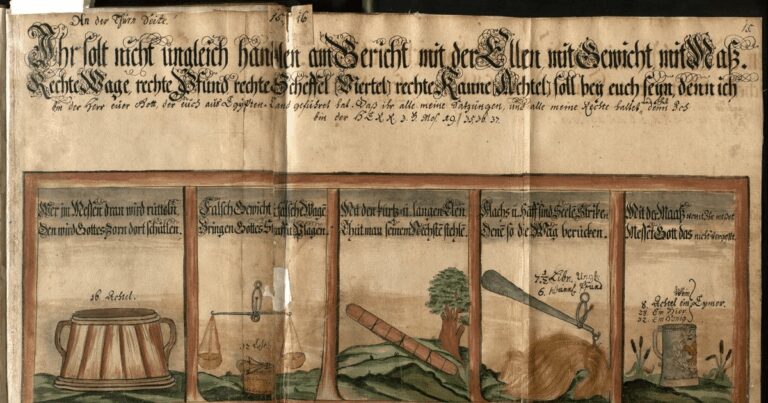 An der Thürn Seite.
15 16
15
Ihr solt nicht ungleich handlen am Gericht mit der Ellen mit Gewicht mit Maß.
Rechte Wage, rechte Pfund, rechte Scheffel, Viertel, rechte Kanne, Achtel, soll bey euch seyn, denn ich
bin der Herr euer Gott, der euch aus Egÿpten-Land geführet hat. Daß ihr alle meine Satzungen, und alle meine Rechte haltet, denn Ich
bin der HERR 3. B. Mos. 19/ 35. 36. 37.
Wer im Messen dran wird rütteln,
Den wird Gottes Zorn dort schütlen.
16 Achtel.
Falsch Gewicht, falsche Wage
Bringen Gottes Straff u. Plagen.
Mit den kurtz u. langen Elen
Thut man seinem Nechsten stehlen.
Flachs u. Hanff sind Seele Strike,
Denē so die Wag verücken.
6. Pfund
Mit der Maaß
Messet Gott das
8. Achtel im Eymer.